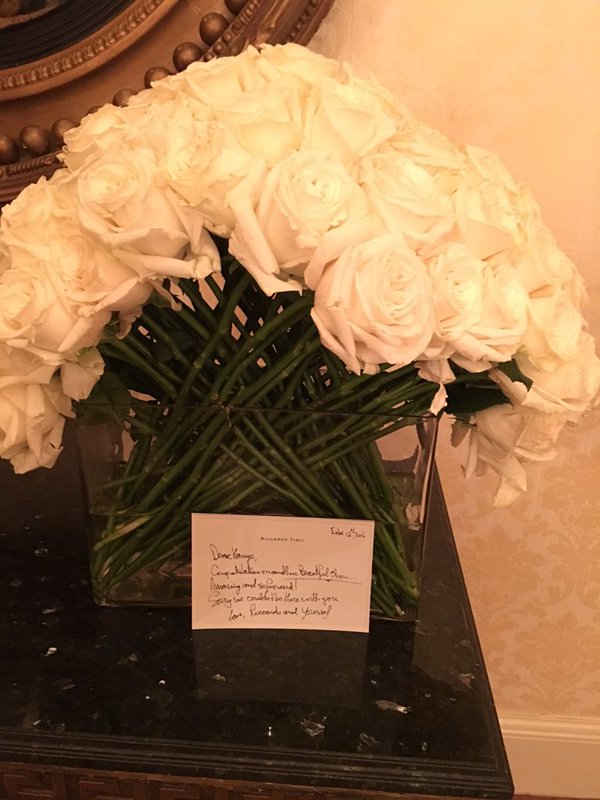 RICCARDO TISCI
Febr. 12th 2016
Dear Kanye,
Congratulations on another Beautiful show...
Amazing and so forward!
Sorry we couldn't be there with you
Love, Riccardo and